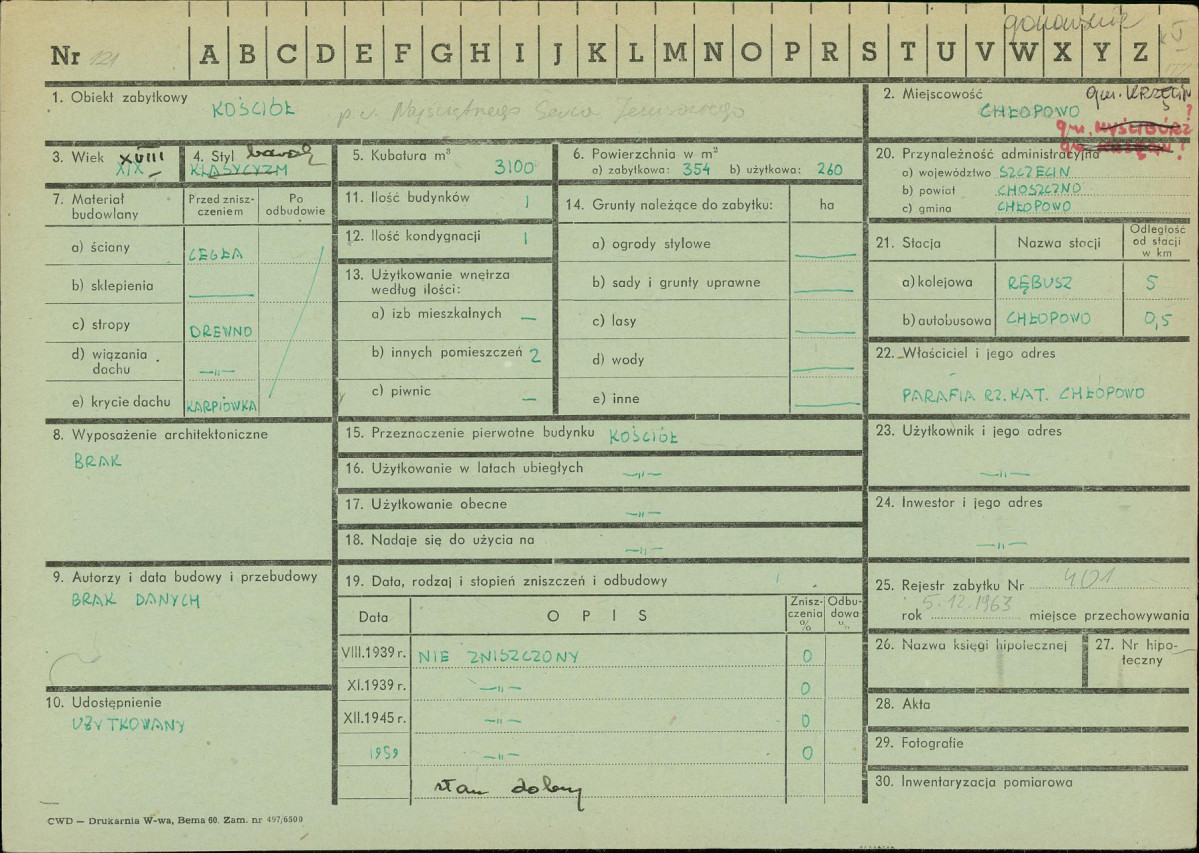 gorzowskie
Nr 121 A B C D E F G H I J K L M N O P R S T U V W X Y Z
1. Obiekt zabytkowy KOŚCIÓŁ p.w. Najświętszego Serca Jezusowego
2. Miejscowość gm. KRZĘCIN
CHŁOPOWO ?
gm. MYŚLIBÓRZ
gm. KRZĘCIN ?
3. Wiek XVIII
XIX
4. Styl barok
KLASYCYZM
5. Kubatura m³ 3100
6. Powierzchnia w m²
a) zabytkowa: 354 b) użytkowa: 260
7. Materiał budowlany
Przed znisz-
czeniem
Po
odbudowie
a) ściany CEGŁA
b) sklepienia —
c) stropy DREWNO
d) wiązania dachu —„—
e) krycie dachu KARPIÓWKA
8. Wyposażenie architektoniczne
BRAK
9. Autorzy i data budowy i przebudowy
BRAK DANYCH
10. Udostępnienie
UŻYTKOWANY
11. Ilość budynków 1
12. Ilość kondygnacji 1
13. Użytkowanie wnętrza
według ilości:
a) izb mieszkalnych —
b) innych pomieszczeń 2
c) piwnic —
14. Grunty należące do zabytku: ha
a) ogrody stylowe —
b) sady i grunty uprawne —
c) lasy —
d) wody —
e) inne —
15. Przeznaczenie pierwotne budynku KOŚCIÓŁ
16. Użytkowanie w latach ubiegłych —„—
17. Użytkowanie obecne —„—
18. Nadaje się do użycia na —„—
19. Data, rodzaj i stopień zniszczeń i odbudowy
Data OPIS Znisz-
czenia
%
Odbu-
dowa
%
VIII.1939 r. NIE ZNISZCZONY 0
XI.1939 r. —„— 0
XII.1945 r. —„— 0
1959 —„— 0
stan dobry
20. Przynależność administracyjna
a) województwo SZCZECIN
b) powiat CHOSZCZNO
c) gmina CHŁOPOWO
21. Stacja Nazwa stacji Odległość
od stacji
w km
a) kolejowa RĘBUSZ 5
b) autobusowa CHŁOPOWO 0,5
22. Właściciel i jego adres
PARAFIA RZ. KAT. CHŁOPOWO
23. Użytkownik i jego adres
—„—
24. Inwestor i jego adres
—„—
25. Rejestr zabytku Nr 401
rok 5.12.1963 miejsce przechowywania
26. Nazwa księgi hipotecznej
27. Nr hipo-
teczny
28. Akta
29. Fotografie
30. Inwentaryzacja pomiarowa
CWD — Drukarnia W-wa, Bema 60. Zam. nr 497/6500